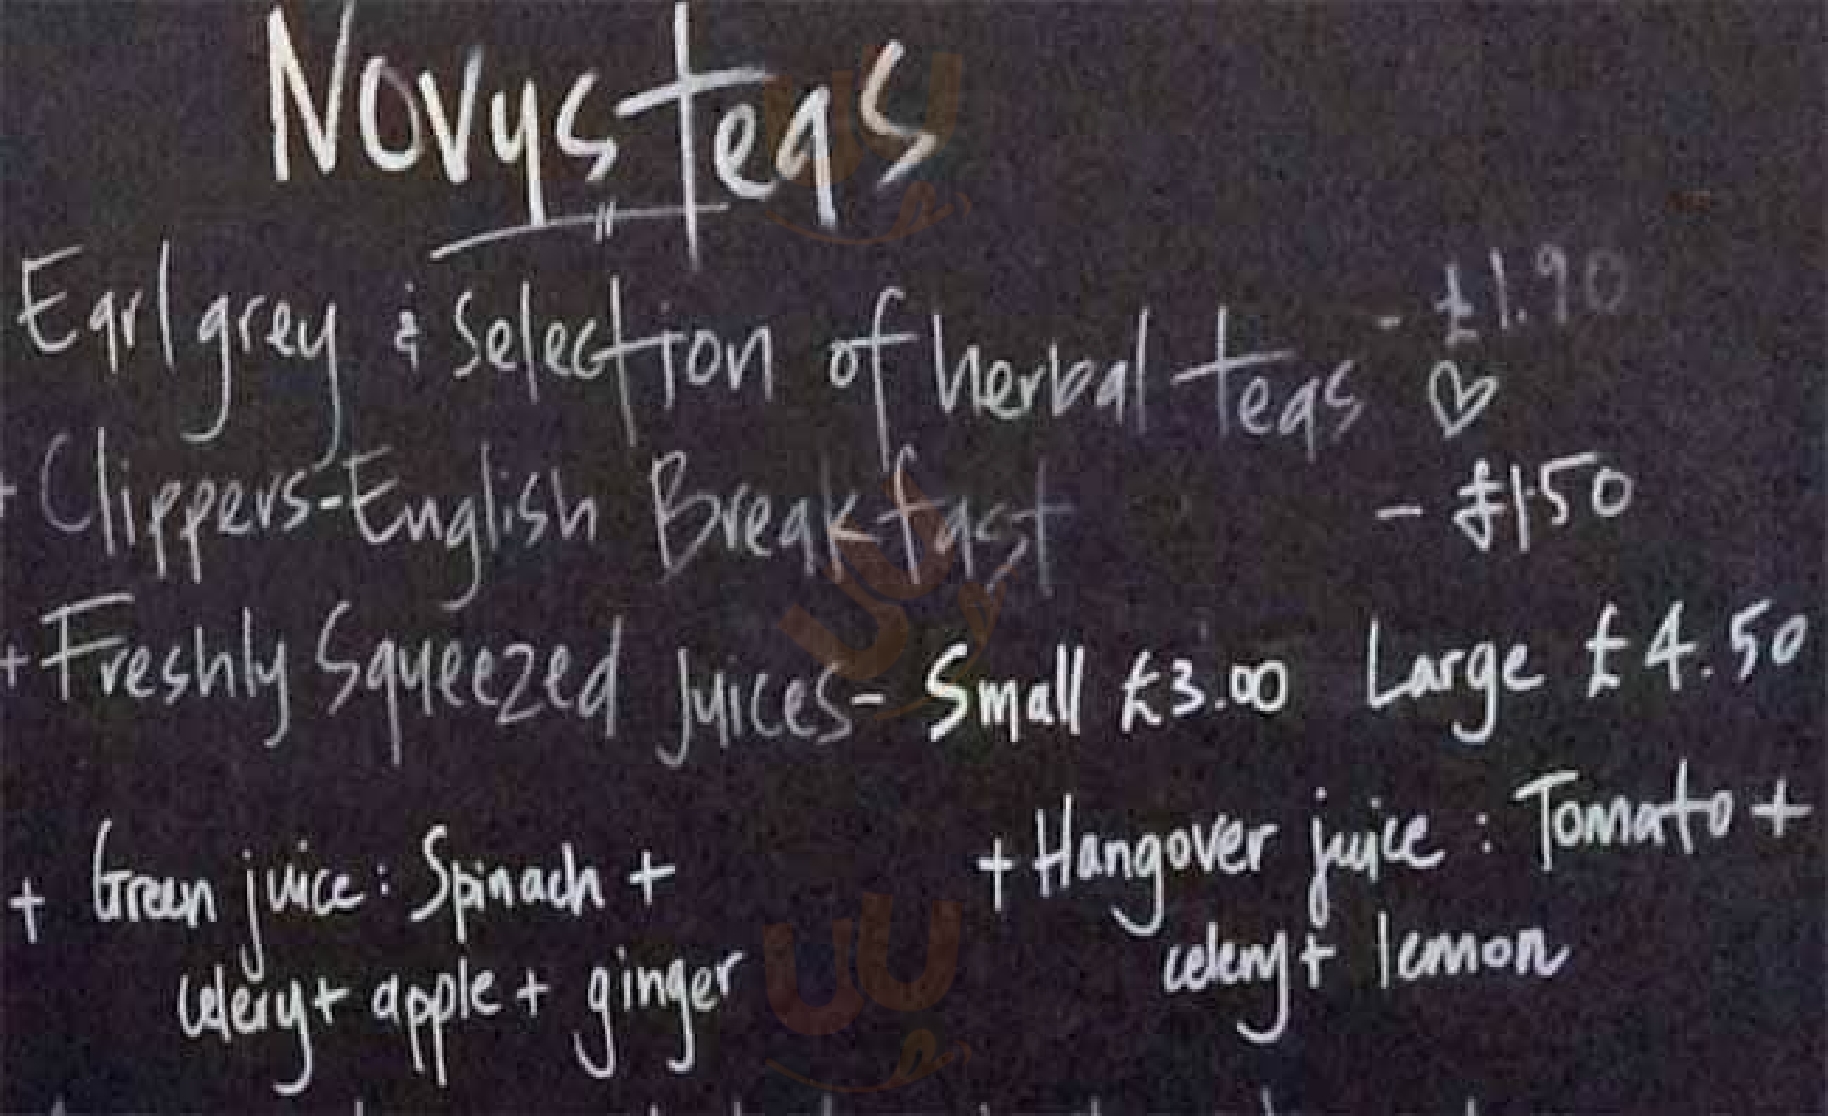 Novys teas
Earl grey & Selection of herbal teas - £1.90
+ Clippers-English Breakfast - £1.50
+ Freshly Squeezed Juices- Small £3.00 Large £4.50
+ Green juice: Spinach +
celery + apple + ginger
+ Hangover juice: Tomato +
celery + lemon